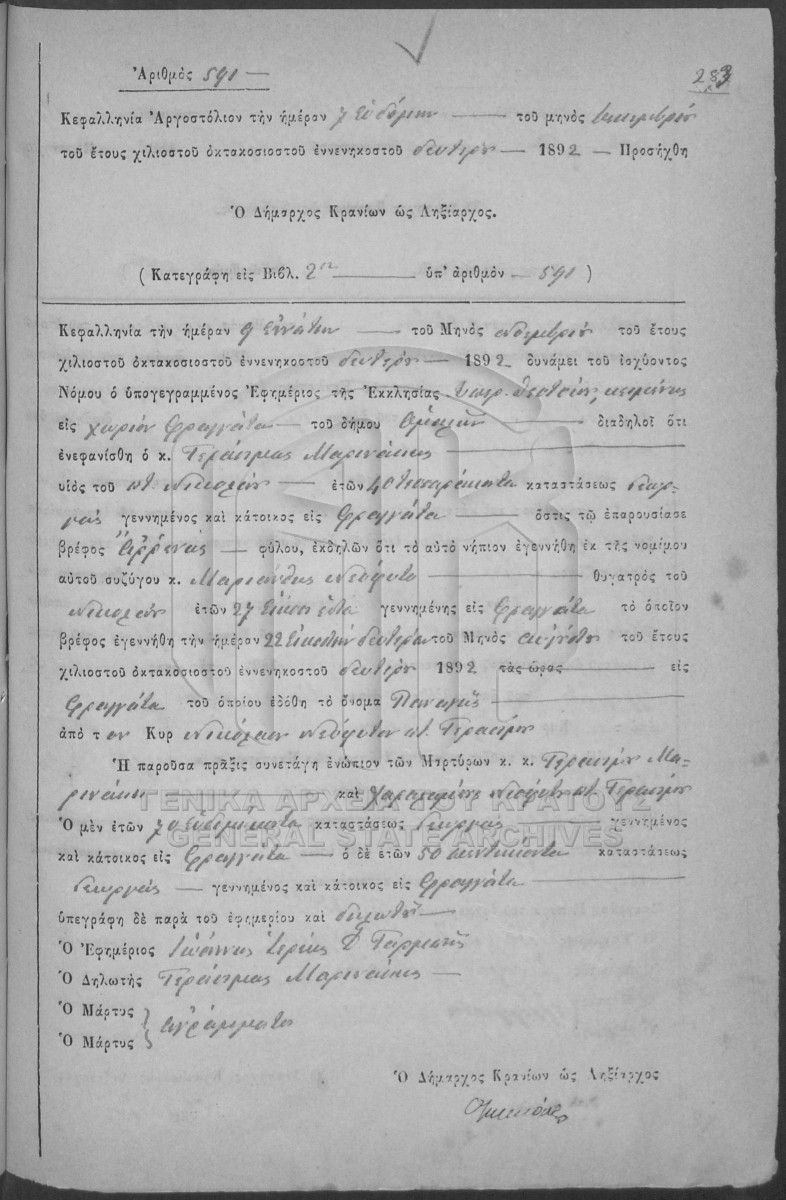 283
Ἀριθμὸς 591 —
Κεφαλληνία Ἀργοστόλιον τὴν ἡμέραν 7 ἑβδόμην — τοῦ μηνὸς
τοῦ ἔτους χιλιοστοῦ ὀκτακοσιοστοῦ ἐννενηκοστοῦ δευτέρου — 1892 — Προσήχθη
Ὁ Δήμαρχος Κρανίων ὡς Ληξίαρχος.
(Κατεγράφη εἰς Βιβλ. 2ον — ὑπ' ἀριθμὸν — 591)
Κεφαλληνία τὴν ἡμέραν 9 ἐννάτην — τοῦ Μηνὸς τοῦ ἔτους
χιλιοστοῦ ὀκτακοσιοστοῦ ἐννενηκοστοῦ δευτέρου — 1892 δυνάμει τοῦ ἰσχύοντος
Νόμου ὁ ὑπογεγραμμένος Ἐφημέριος τῆς Ἐκκλησίας κειμένης
εἰς χωρίον Φραγγάτα — τοῦ δήμου Ὁμαλῶν — διαδηλοῖ ὅτι
ἐνεφανίσθη ὁ κ. Γεράσιμος Μαρινάκης —
υἱὸς τοῦ ποτ. Νικολάου — ἐτῶν 40 τεσσαράκοντα καταστάσεως γεωρ-
γὸς γεννημένος καὶ κάτοικος εἰς Φραγγάτα — ὅστις τῷ ἐπαρουσίασε
βρέφος ἄῤῥενος — φύλου, ἐκδηλῶν ὅτι τὸ αὐτὸ νήπιον ἐγεννήθη ἐκ τῆς νομίμου
αὐτοῦ συζύγου κ. Μαριάνθης Νεόφυτο — θυγατρὸς τοῦ
Νικολάου ἐτῶν 27 εἴκοσι ἑπτά γεννημένης εἰς Φραγγάτα τὸ ὁποῖον
βρέφος ἐγεννήθη τὴν ἡμέραν 22 εἰκοστὴν δευτέραν τοῦ Μηνὸς αὐγούστου τοῦ ἔτους
χιλιοστοῦ ὀκτακοσιοστοῦ ἐννενηκοστοῦ δευτέρου 1892 τὰς ὥρας — εἰς
Φραγγάτα τοῦ ὁποίου ἐδόθη τὸ ὄνομα Παναγῆς —
ἀπὸ τὸν Κυρ Νικόλαον Νεόφυτον ποτ. Γερασίμου
Ἡ παροῦσα πρᾶξις συνετάγη ἐνώπιον τῶν Μαρτύρων κ. κ. Γερασίμου Μα-
ρινάκη — καὶ Χαραλάμπους Νεοφύτου ποτ. Γερασίμου
ΓΕΝΙΚΑ ΑΡΧΕΙΑ ΤΟΥ ΚΡΑΤΟΥΣ
GENERAL STATE ARCHIVES
Ὁ μὲν ἐτῶν 70 ἑβδομήκοντα καταστάσεως Γεωργὸς — γεννημένος
καὶ κάτοικος εἰς Φραγγάτα — ὁ δὲ ἐτῶν 50 πεντήκοντα καταστάσεως
Γεωργὸς — γεννημένος καὶ κάτοικος εἰς Φραγγάτα —
ὑπεγράφη δὲ παρὰ τοῦ ἐφημερίου καὶ δηλωτοῦ —
Ὁ Ἐφημέριος Ἰωάννης ἱερεὺς
Ὁ Δηλωτής Γεράσιμος Μαρινάκης —
Ὁ Μάρτυς } ἀγράμματοι
Ὁ Μάρτυς
Ὁ Δήμαρχος Κρανίων ὡς Ληξίαρχος